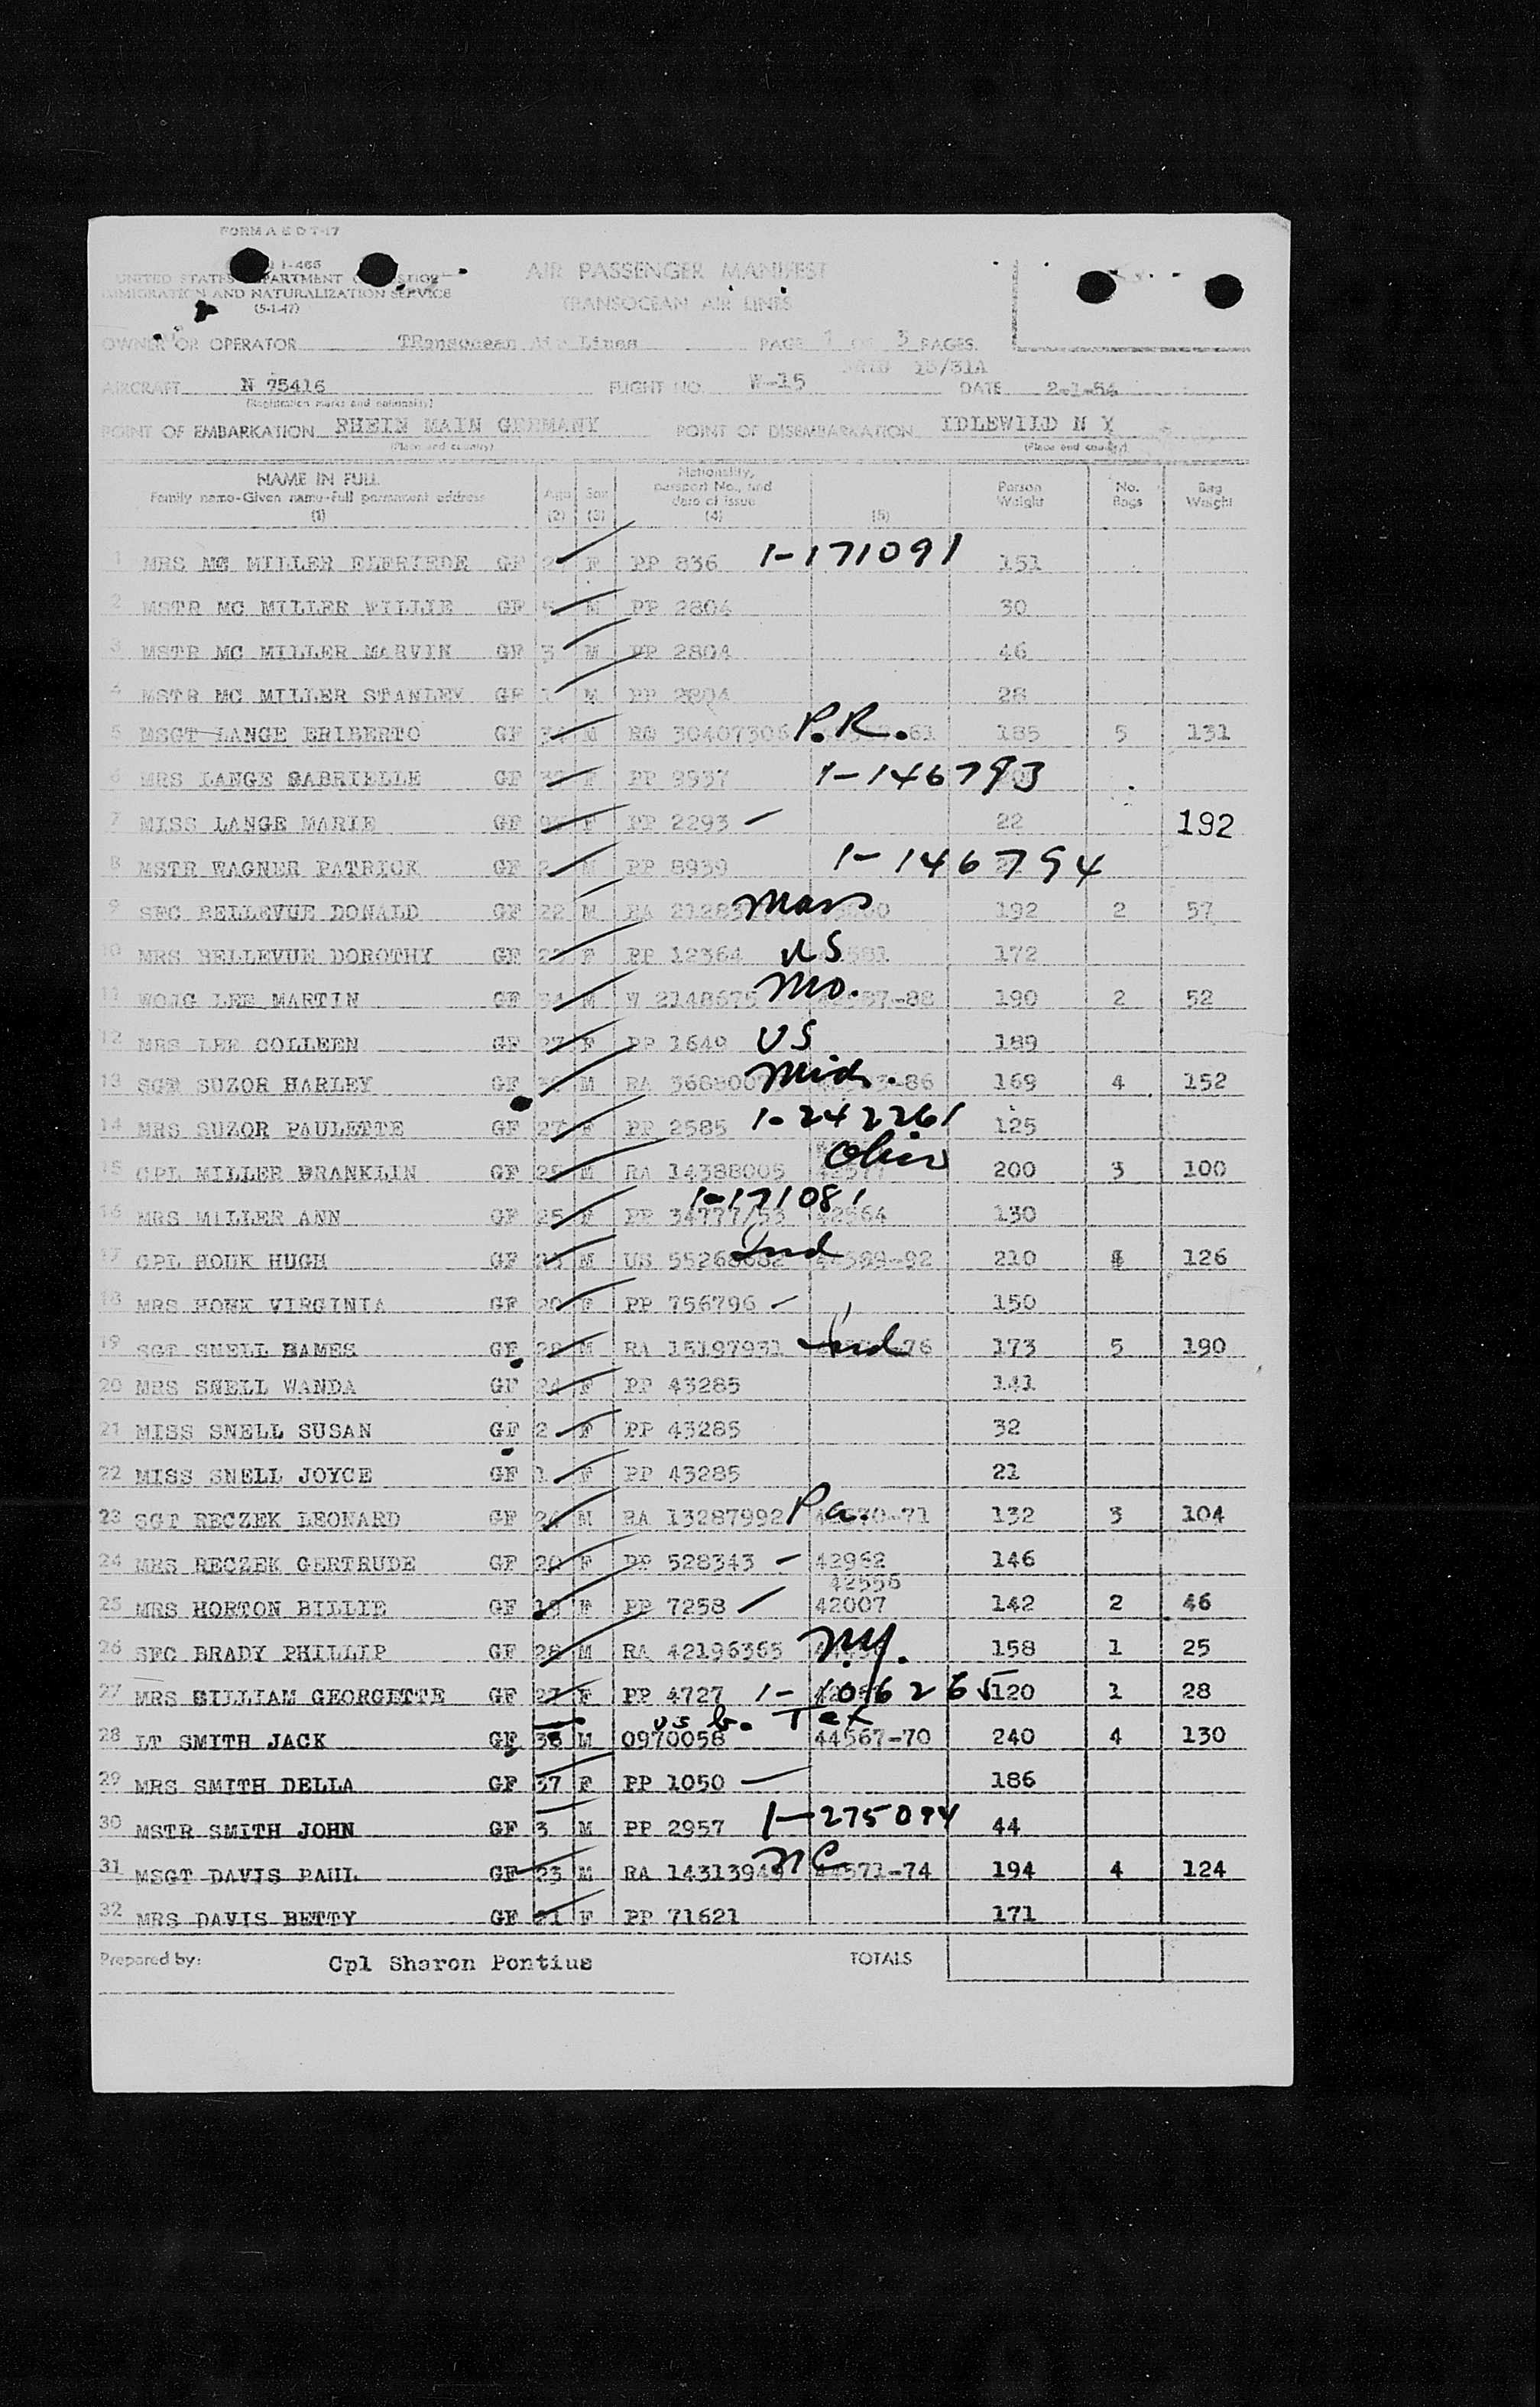 FORM A E D T-17
I-466
UNITED STATES DEPARTMENT OF JUSTICE
IMMIGRATION AND NATURALIZATION SERVICE
(5-1-47)
AIR PASSENGER MANIFEST
TRANSOCEAN AIR LINES
OWNER OR OPERATOR TRansocean Air Lines PAGE 1 OF 3 PAGES.
15/31A
AIRCRAFT N 75416 FLIGHT NO. W-15 DATE 2-1-54
(Registration marks and nationality)
POINT OF EMBARKATION RHEIN MAIN GERMANY POINT OF DISEMBARKATION IDLEWILD N Y
(Place and country) (Place and country)
NAME IN FULL Family name-Given name-full permanent address (1) Age (2) Sex (3) Nationality, passport No., and date of issue (4) (5) Person Weight No. Bags Bag Weight
1 MRS MC MILLER ELFRIEDE GF F PP 836 1-171091 151
2 MSTR MC MILLER WILLIE GF M PP 2804 30
3 MSTR MC MILLER MARVIN GF 3 M PP 2804 46
4 MSTR MC MILLER STANLEY GF 1 M PP 2804 28
5 MSGT LANGE ERIBERTO GF M RA 30407306 P.R. 61 185 5 131
6 MRS LANGE GABRIELLE GF F PP 2937 1-146793
7 MISS LANGE MARIE GF F PP 2293 22 192
8 MSTR WAGNER PATRICK GF 2 M PP 8939 1-146794
9 SFC BELLEVUE DONALD GF 22 M RA Mass 192 2 57
10 MRS BELLEVUE DOROTHY GF F PP 12364 US 172
11 WOJG LEE MARTIN GF 34 M W 2148675 Mo. 88 190 2 52
12 MRS LEE COLLEEN GF 27 F PP 1649 US 189
13 SGT SUZOR HARLEY GF M RA Mich. 86 169 4 152
14 MRS SUZOR PAULETTE GF 27 F PP 2585 1-242261 125
15 CPL MILLER BRANKLIN GF M RA 14388005 Ohio 200 3 100
16 MRS MILLER ANN GF 25 F PP 34777/53 1-171081 42564 130
17 CPL HOUK HUGH GF M US Ind 92 210 126
18 MRS HOUK VIRGINIA GF 20 F PP 756796 150
19 SGT SNELL HAMES GF 28 M RA 15197931 Ind 76 173 5 190
20 MRS SNELL WANDA GF 24 F PP 43285 141
21 MISS SNELL SUSAN GF 2 F PP 43285 32
22 MISS SNELL JOYCE GF 1 F PP 43285 21
23 SGT RECZEK LEONARD GF M RA 13287992 Pa. 70-71 132 3 104
24 MRS RECZEK GERTRUDE GF 20 F PP 528343 42962 146
42556
25 MRS HORTON BILLIE GF 19 F PP 7258 42007 142 2 46
26 SFC BRADY PHILLIP GF 28 M RA 42196365 N.Y. 158 1 25
27 MRS GILLIAM GEORGETTE GF 27 F PP 4727 1-106265 120 1 28
28 LT SMITH JACK GF 38 M 0970058 us b. Tex 44567-70 240 4 130
29 MRS SMITH DELLA GF 37 F PP 1050 186
30 MSTR SMITH JOHN GF 3 M PP 2957 1-275094 44
31 MSGT DAVIS PAUL GF 23 M RA NC 44571-74 194 4 124
32 MRS DAVIS BETTY GF 21 F PP 71621 171
Prepared by: Cpl Sharon Pontius TOTALS